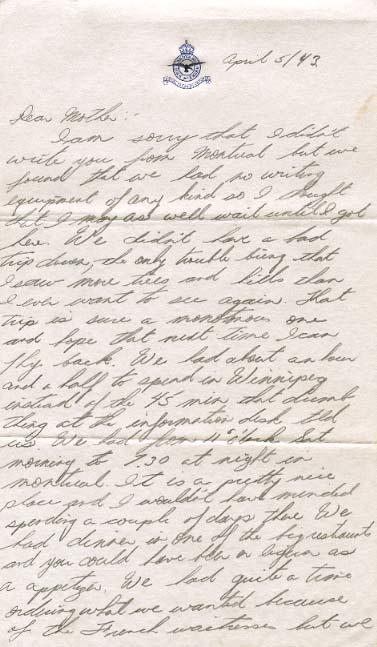 April 5/43
Dear Mother:-
I am sorry that I didn't
write you from Montreal but we
found that we had no writing
equipment of any kind so I thought
that I may as well wait until I got
here. We didn't have a bad
trip down, the only trouble being that
I saw more trees and hills than
I ever want to see again. That
trip is sure a monotonous one
and hope that next time I can
fly back. We had about an hour
and a half to spend in Winnipeg
instead of the 45 min. that dumb
thing at the information desk told
us. We had from 11 o'clock Sat.
morning to 7.30 at night in
Montreal. It is a pretty nice
place and I wouldn't have minded
spending a couple of days there. We
had dinner in one of the big restaurants
and you could have been on as
a appetizer. We had quite a time
ordering what we wanted because
of the French waitresses but we